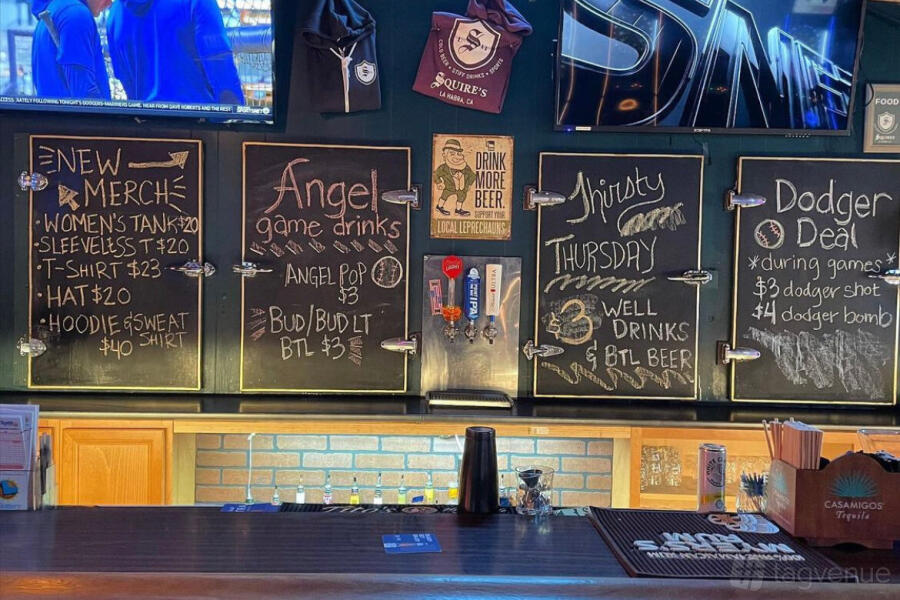 ACCESS
FOLLOWING TONIGHT'S DODGERS-MARINERS GAME, HEAR FROM DAVE ROBERTS AND THE REST
COLD BEER • STIFF DRINKS • SPORTS
SQUIRE'S
LA HABRA, CA
FOOD
NEW
MERCH
WOMEN'S TANK $20
• SLEEVELESS T $20
• T-SHIRT $23
• HAT $20
• HOODIE & SWEAT
SHIRT
$40
Angel
game drinks
ANGEL POP
$3
BUD/BUD LT
BTL $3
DRINK
MORE
BEER.
SUPPORT YOUR
LOCAL LEPRECHAUNS
IPA
Thirsty
THURSDAY
$3 WELL
DRINKS
& BTL BEER
Dodger
Deal
*during games*
$3 dodger shot
$4 dodger bomb
CASAMIGOS
Tequila
100% JAMAICAN RUM
MYERS'S
RUM
tagvenue